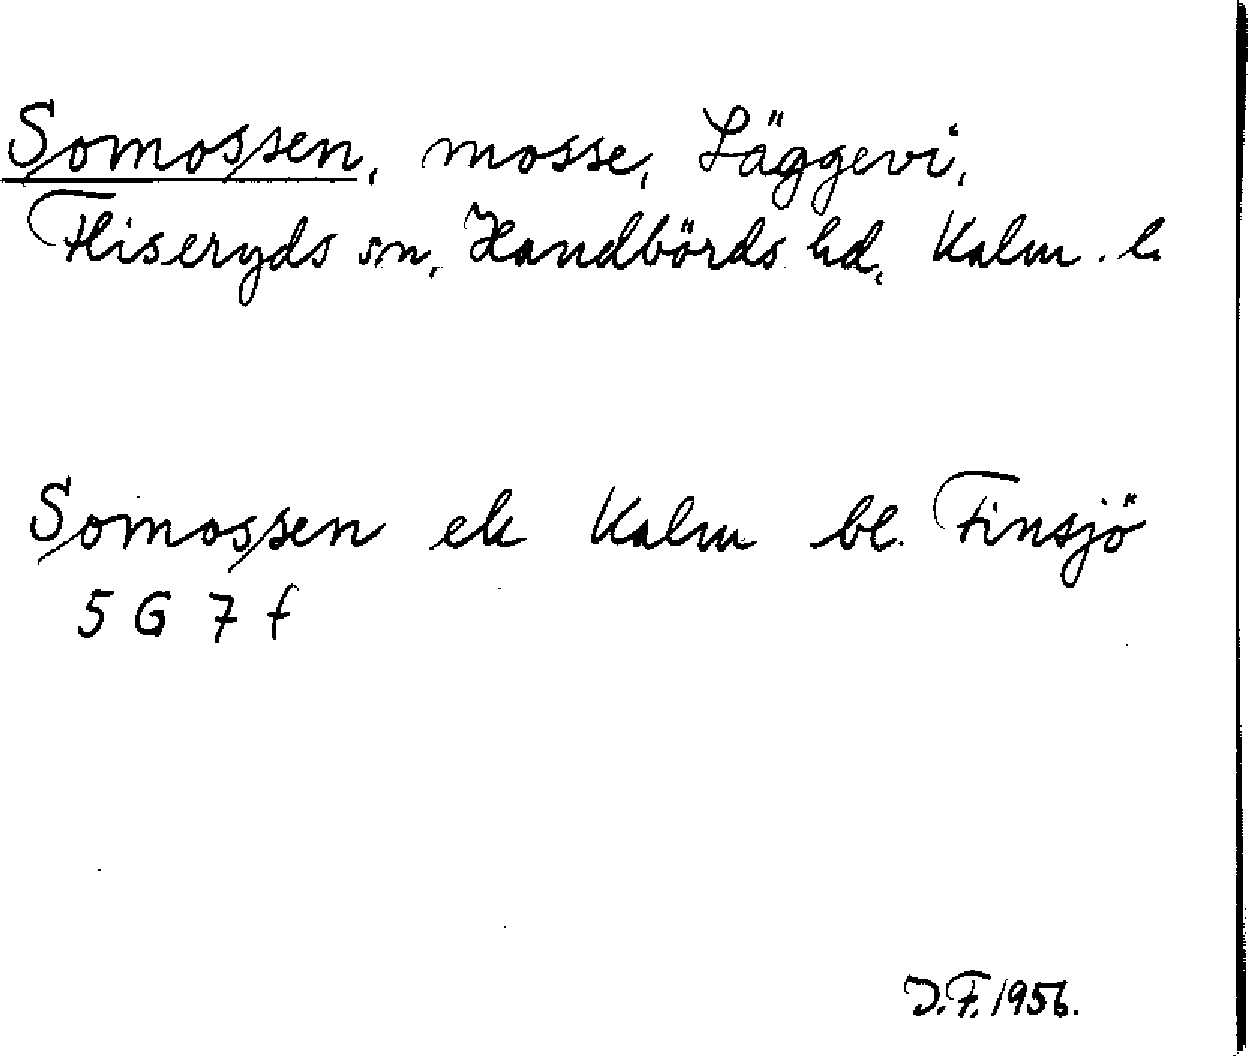 Somossen, mosse, Läggevi,
Fliseryds sn, Handbörds hd, Kalm. l.
Somossen ek Kalm bl. Finsjö
5 G 7 f
J.F. 1956.